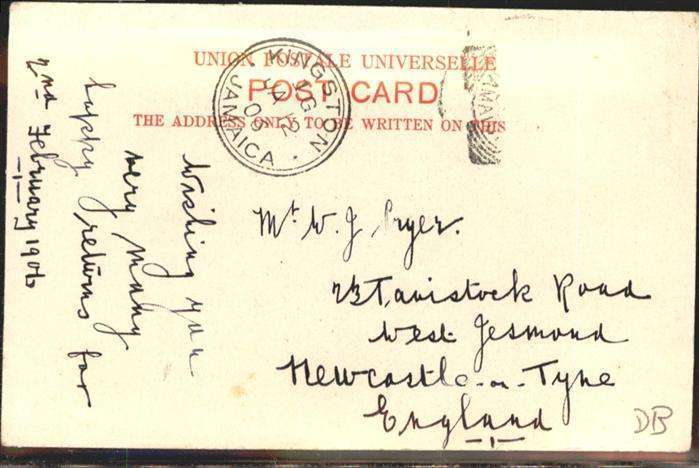 UNION POSTALE UNIVERSELLE
POST CARD
THE ADDRESS ONLY TO BE WRITTEN ON THIS
KINGSTON
JAMAICA
Wishing you
very many
happy returns for
2nd February 1906
Mr. W. J. Pryer.
23 Tavistock Road
West Jesmond
Newcastle-on-Tyne
England
DB